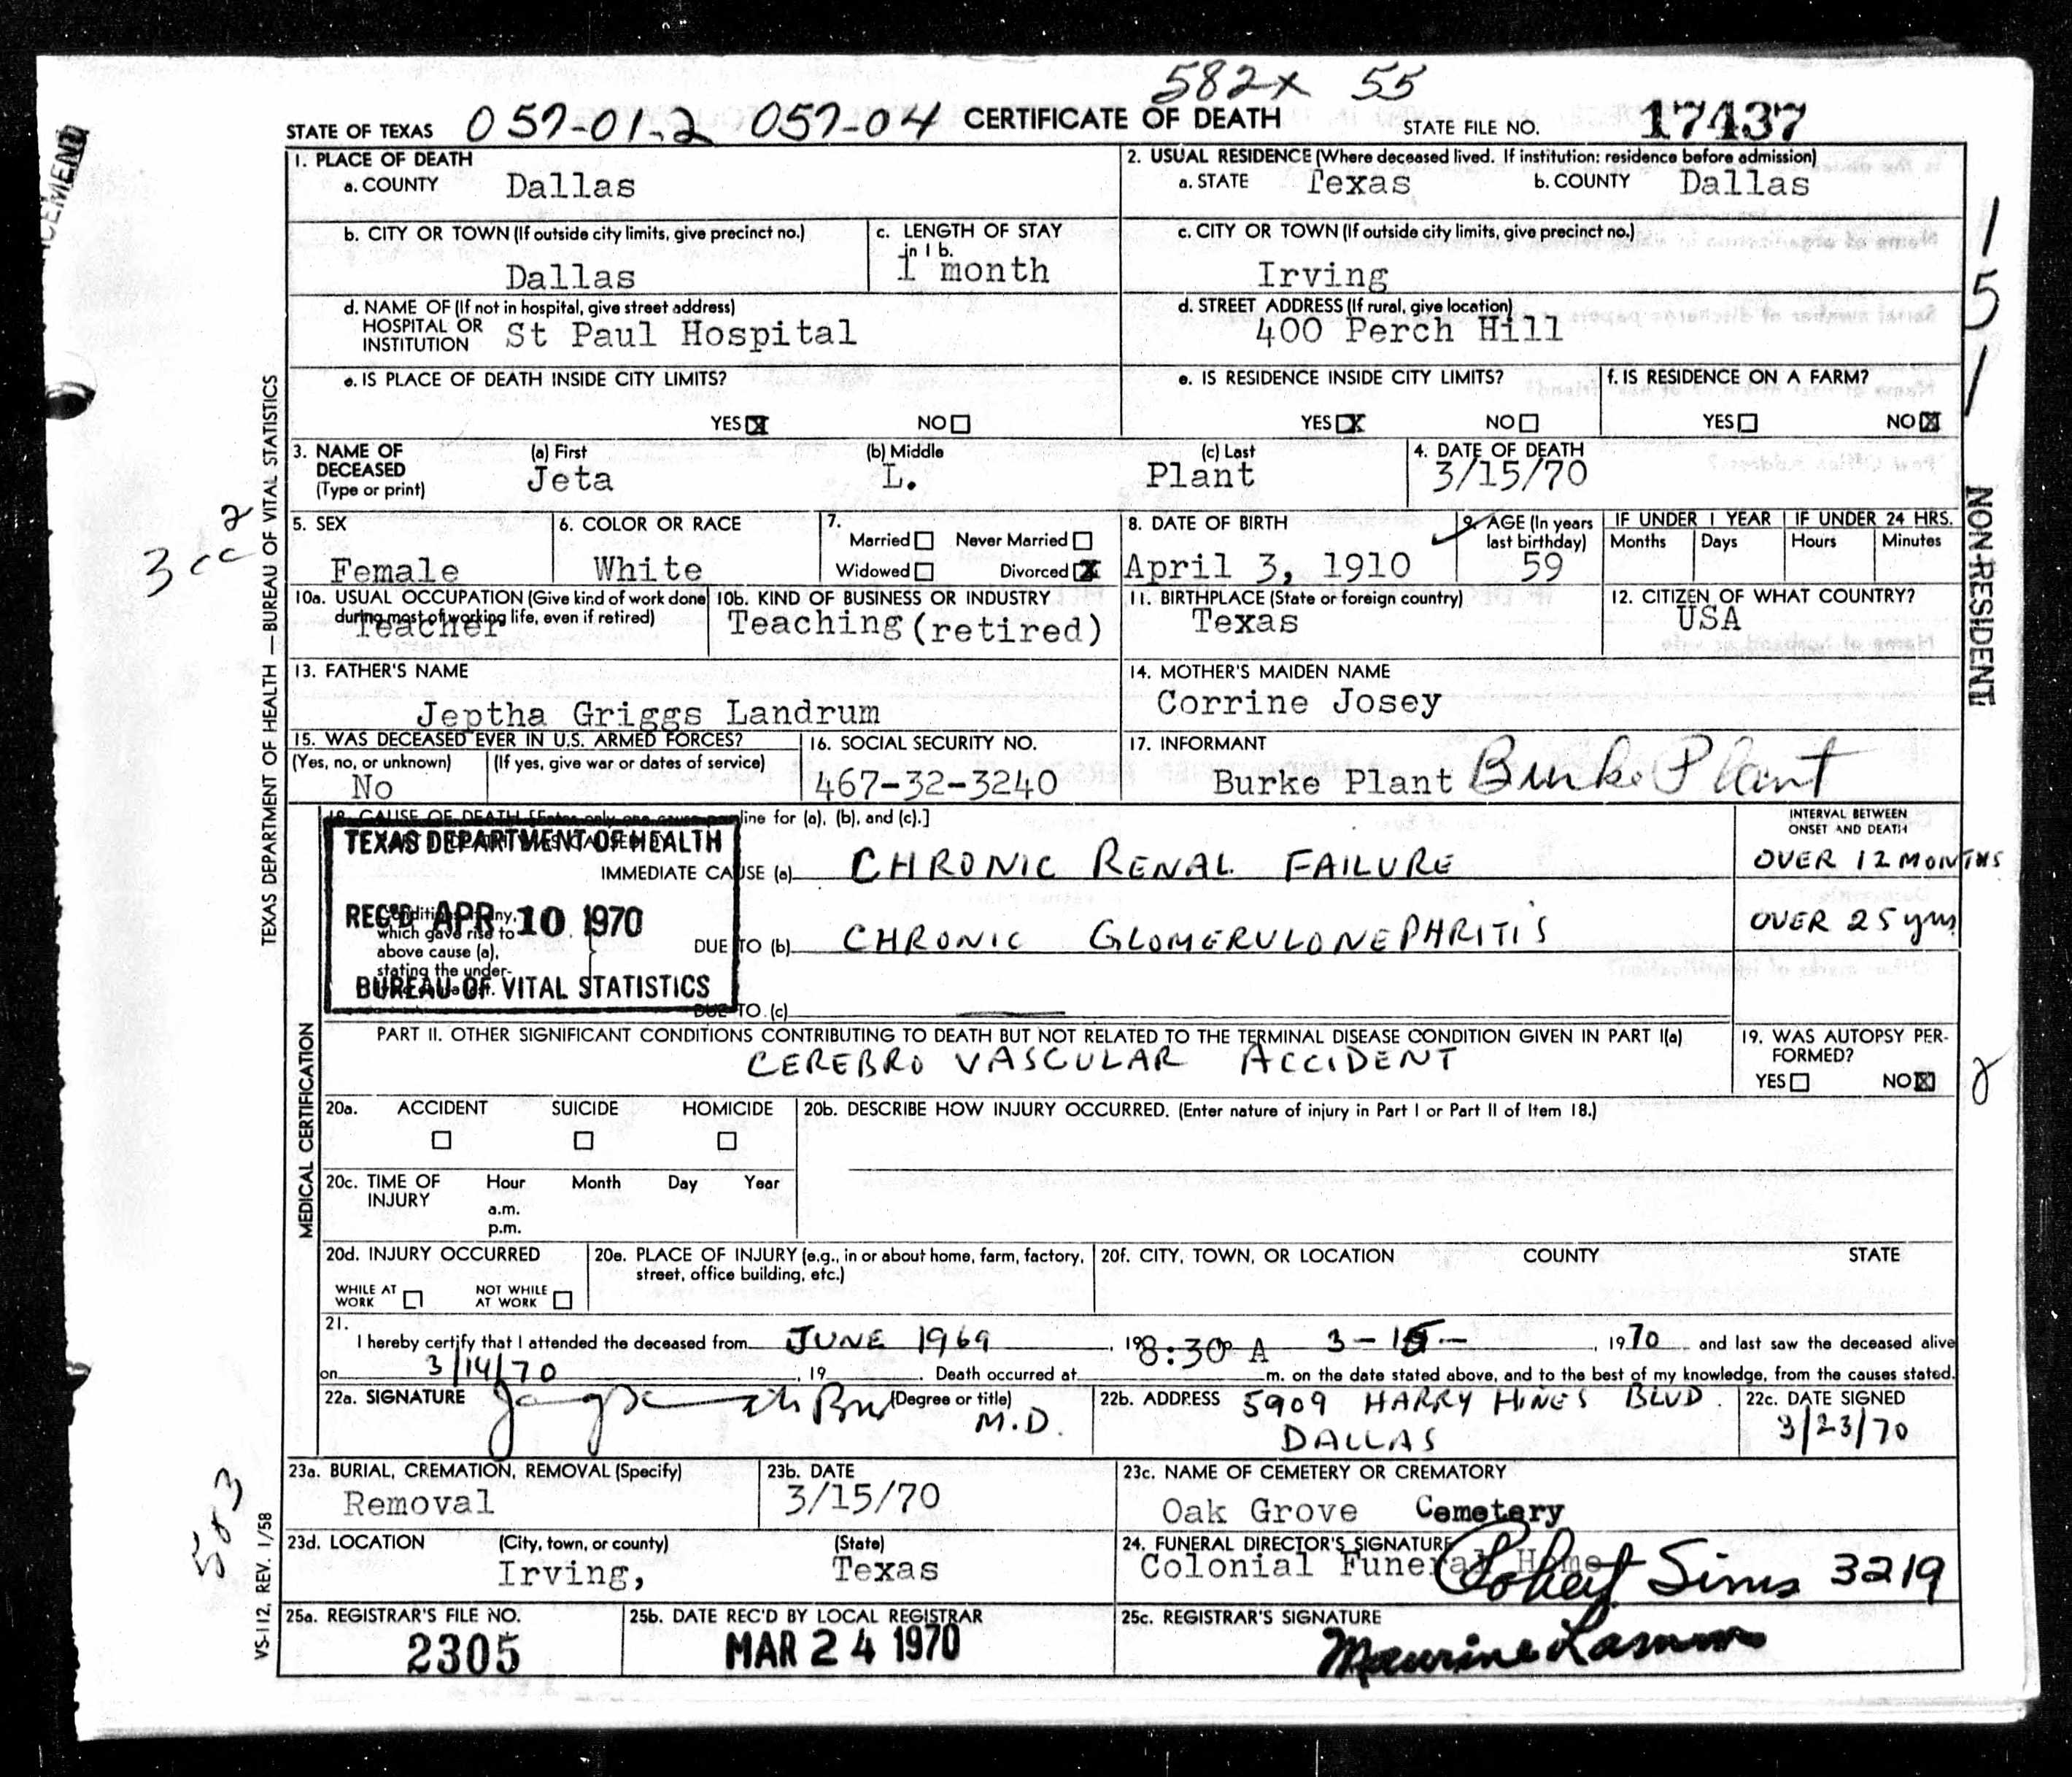 582x 55
STATE OF TEXAS 057-01-2 057-04 CERTIFICATE OF DEATH STATE FILE NO. 17437
1. PLACE OF DEATH
a. COUNTY Dallas
2. USUAL RESIDENCE (Where deceased lived. If institution: residence before admission)
a. STATE Texas b. COUNTY Dallas
b. CITY OR TOWN (If outside city limits, give precinct no.)
Dallas
c. LENGTH OF STAY
in 1 b.
1 month
c. CITY OR TOWN (If outside city limits, give precinct no.)
Irving
d. NAME OF (If not in hospital, give street address)
HOSPITAL OR
INSTITUTION St Paul Hospital
d. STREET ADDRESS (If rural, give location)
400 Perch Hill
e. IS PLACE OF DEATH INSIDE CITY LIMITS?
YES X NO
e. IS RESIDENCE INSIDE CITY LIMITS?
YES X NO
f. IS RESIDENCE ON A FARM?
YES NO X
151
NON-RESIDENT
3. NAME OF
DECEASED
(Type or print)
(a) First
Jeta
(b) Middle
L.
(c) Last
Plant
4. DATE OF DEATH
3/15/70
5. SEX
Female
6. COLOR OR RACE
White
7.
Married Never Married
Widowed Divorced X
8. DATE OF BIRTH
April 3, 1910
9. AGE (In years
last birthday)
59
IF UNDER 1 YEAR
Months Days
IF UNDER 24 HRS.
Hours Minutes
10a. USUAL OCCUPATION (Give kind of work done
during most of working life, even if retired)
Teacher
10b. KIND OF BUSINESS OR INDUSTRY
Teaching (retired)
11. BIRTHPLACE (State or foreign country)
Texas
12. CITIZEN OF WHAT COUNTRY?
USA
13. FATHER'S NAME
Jeptha Griggs Landrum
14. MOTHER'S MAIDEN NAME
Corrine Josey
15. WAS DECEASED EVER IN U.S. ARMED FORCES?
(Yes, no, or unknown) (If yes, give war or dates of service)
No
16. SOCIAL SECURITY NO.
467-32-3240
17. INFORMANT
Burke Plant Burke Plant
18. CAUSE OF DEATH [Enter only one cause per line for (a), (b), and (c).]
INTERVAL BETWEEN
ONSET AND DEATH
TEXAS DEPARTMENT OF HEALTH
REC'D APR 10 1970
BUREAU OF VITAL STATISTICS
IMMEDIATE CAUSE (a) CHRONIC RENAL FAILURE OVER 12 MONTHS
Conditions, if any,
which gave rise to
above cause (a),
stating the under-
DUE TO (b) CHRONIC GLOMERULONEPHRITIS OVER 25 yrs
DUE TO (c)
PART II. OTHER SIGNIFICANT CONDITIONS CONTRIBUTING TO DEATH BUT NOT RELATED TO THE TERMINAL DISEASE CONDITION GIVEN IN PART I(a)
CEREBRO VASCULAR ACCIDENT
19. WAS AUTOPSY PER-
FORMED?
YES NO X
20a. ACCIDENT SUICIDE HOMICIDE
20b. DESCRIBE HOW INJURY OCCURRED. (Enter nature of injury in Part I or Part II of Item 18.)
20c. TIME OF
INJURY
Hour Month Day Year
a.m.
p.m.
20d. INJURY OCCURRED
WHILE AT
WORK
NOT WHILE
AT WORK
20e. PLACE OF INJURY (e.g., in or about home, farm, factory,
street, office building, etc.)
20f. CITY, TOWN, OR LOCATION COUNTY STATE
21.
I hereby certify that I attended the deceased from JUNE 1969, 19 8:30 A 3-15-, 1970 and last saw the deceased alive
on 3/14/70, 19 . Death occurred at m. on the date stated above, and to the best of my knowledge, from the causes stated.
22a. SIGNATURE (Degree or title)
M.D.
22b. ADDRESS 5909 HARRY HINES BLVD.
DALLAS
22c. DATE SIGNED
3/23/70
23a. BURIAL, CREMATION, REMOVAL (Specify)
Removal
23b. DATE
3/15/70
23c. NAME OF CEMETERY OR CREMATORY
Oak Grove Cemetery
23d. LOCATION (City, town, or county) (State)
Irving, Texas
24. FUNERAL DIRECTOR'S SIGNATURE
Colonial Funeral Home Robert Sims 3219
25a. REGISTRAR'S FILE NO.
2305
25b. DATE REC'D BY LOCAL REGISTRAR
MAR 24 1970
25c. REGISTRAR'S SIGNATURE
Maurine Lamm
TEXAS DEPARTMENT OF HEALTH — BUREAU OF VITAL STATISTICS
MEDICAL CERTIFICATION
VS-112, REV. 1/58
583